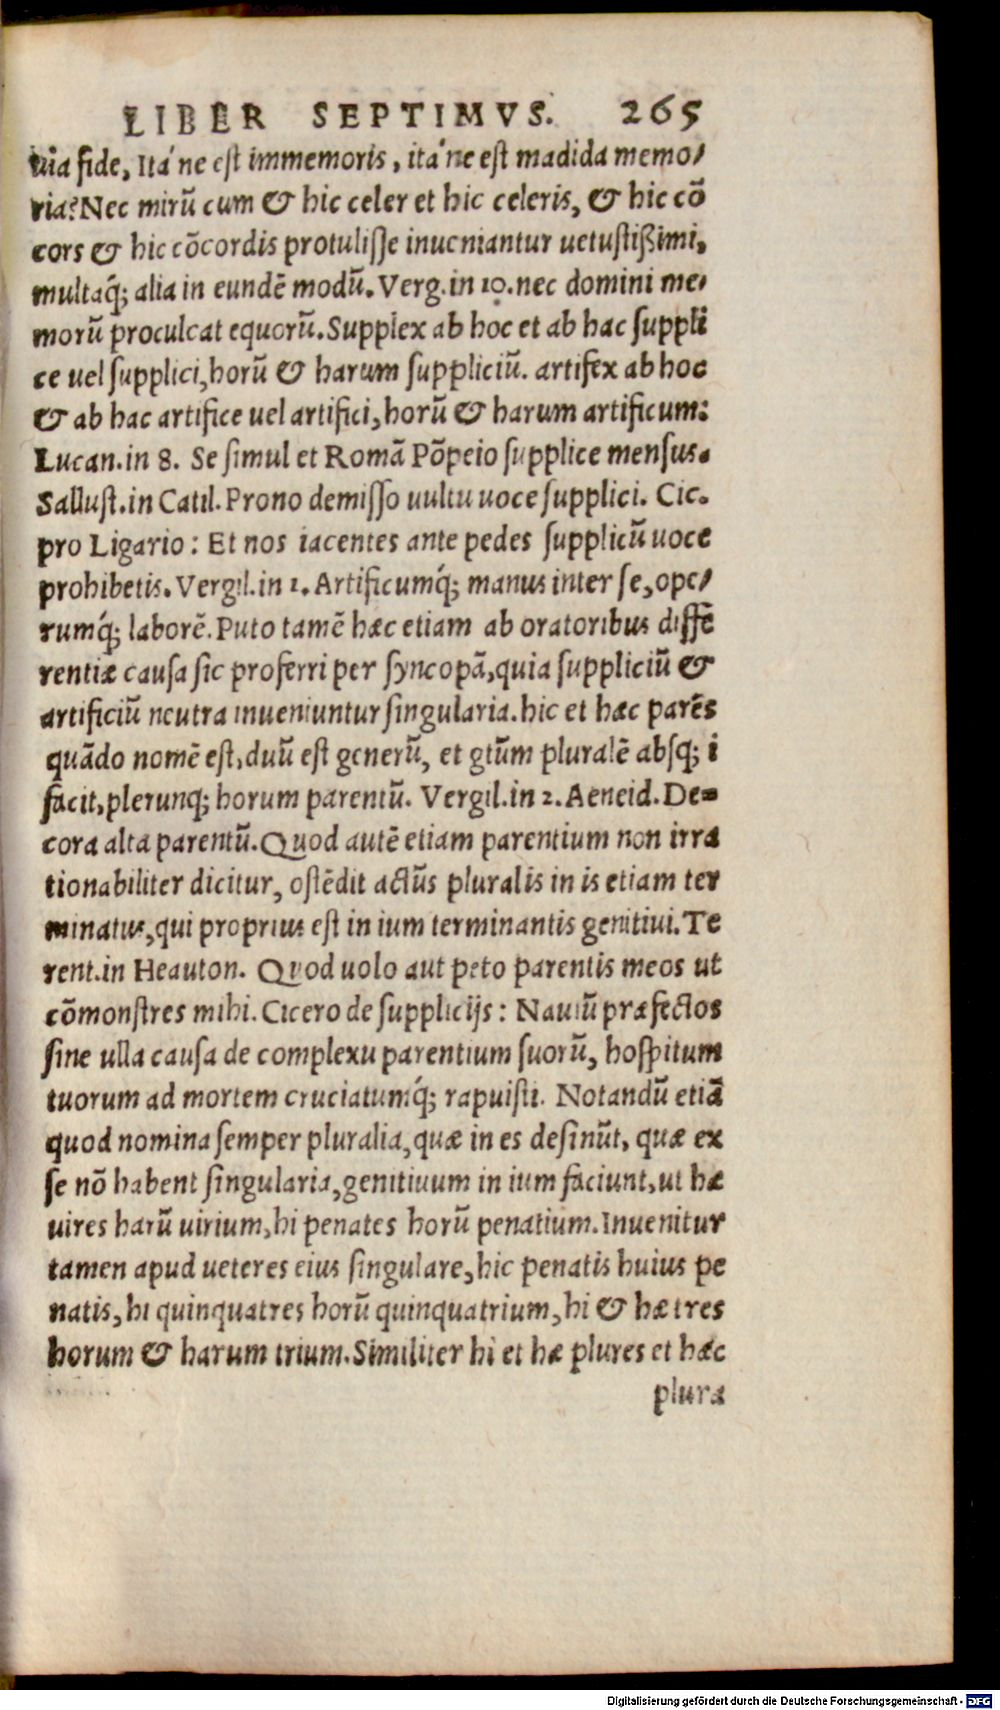 LIBER SEPTIMVS. 265
tua fide, Ita´ne est immemoris, ita´ne est madida memo/
ria? Nec mirũ cum & hic celer et hic celeris, & hic cõ
cors & hic cõcordis protulisse inueniantur uetustißimi,
multaq́; alia in eundẽ modũ. Verg. in 10. nec domini me/
morũ proculcat equorũ. Supplex ab hoc et ab hac suppli
ce uel supplici, horũ & harum suppliciũ. artifex ab hoc
& ab hac artifice uel artifici, horũ & harum artificum:
Lucan. in 8. Se simul et Romã Põpeio supplice mensus.
Sallust. in Catil. Prono demisso uultu uoce supplici. Cic.
pro Ligario: Et nos iacentes ante pedes supplicũ uoce
prohibetis. Vergil. in 1. Artificumq́; manus inter se, ope/
rumq́; laborẽ. Puto tamẽ hæc etiam ab oratoribus diffe
rentiæ causa sic proferri per syncopã, quia suppliciũ &
artificiũ neutra inueniuntur singularia. hic et hæc parẽs
quãdo nomẽ est, duũ est generũ, et gtũm pluralẽ absq; i
facit, plerunq; horum parentũ. Vergil. in 2. Aeneid. De-
cora alta parentũ. Quod autẽ etiam parentium non irra
tionabiliter dicitur, ostẽdit actũs pluralis in is etiam ter
minatus, qui proprius est in ium terminantis genitiui. Te
rent. in Heauton. Quod uolo aut peto parentis meos ut
cõmonstres mihi. Cicero de supplicijs: Nauiũ præfectos
sine ulla causa de complexu parentium suorũ, hospitum
tuorum ad mortem cruciatumq́; rapuisti. Notandũ etiã
quod nomina semper pluralia, quæ in es desinũt, quæ ex
se nõ habent singularia, genitiuum in ium faciunt, ut hæ
uires harũ uirium, hi penates horũ penatium. Inuenitur
tamen apud ueteres eius singulare, hic penatis huius pe
natis, hi quinquatres horũ quinquatrium, hi & hæ tres
horum & harum trium. Similiter hi et hæ plures et hæc
plura
Digitalisierung gefördert durch die Deutsche Forschungsgemeinschaft - DFG